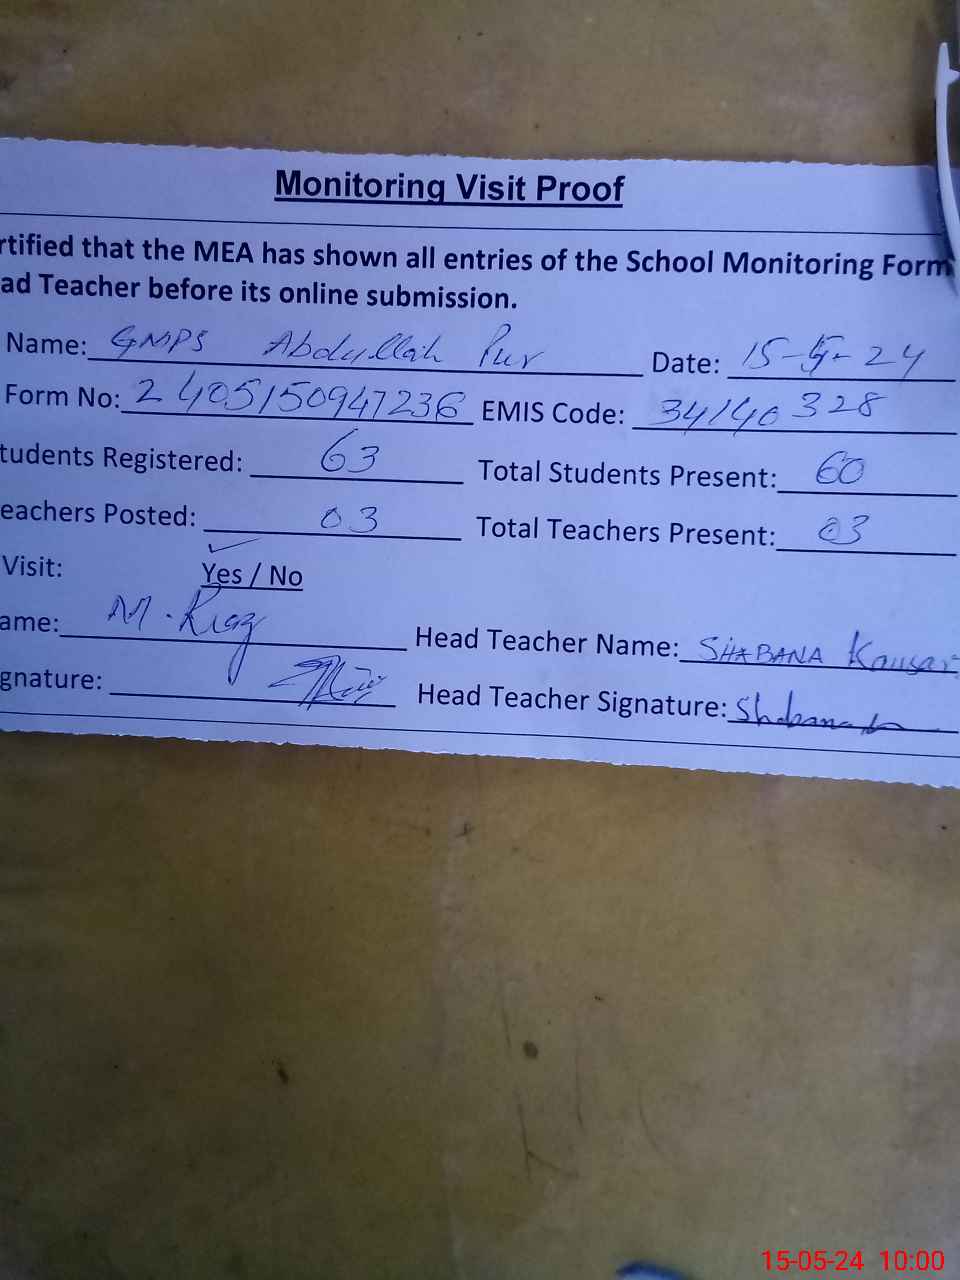 Monitoring Visit Proof
rtified that the MEA has shown all entries of the School Monitoring Form
ad Teacher before its online submission.
Name: GMPS Abdullah Pur Date: 15-5-24
Form No: 2405150947236 EMIS Code: 34140328
tudents Registered: 63 Total Students Present: 60
eachers Posted: 03 Total Teachers Present: 03
Visit: Yes / No
ame: M. Riaz Head Teacher Name: SHABANA Kausar
gnature: Head Teacher Signature: Shabana k
15-05-24 10:00